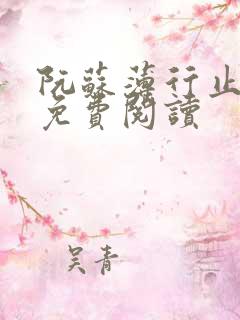 阮蘇薄行止
免費閱讀
吴青